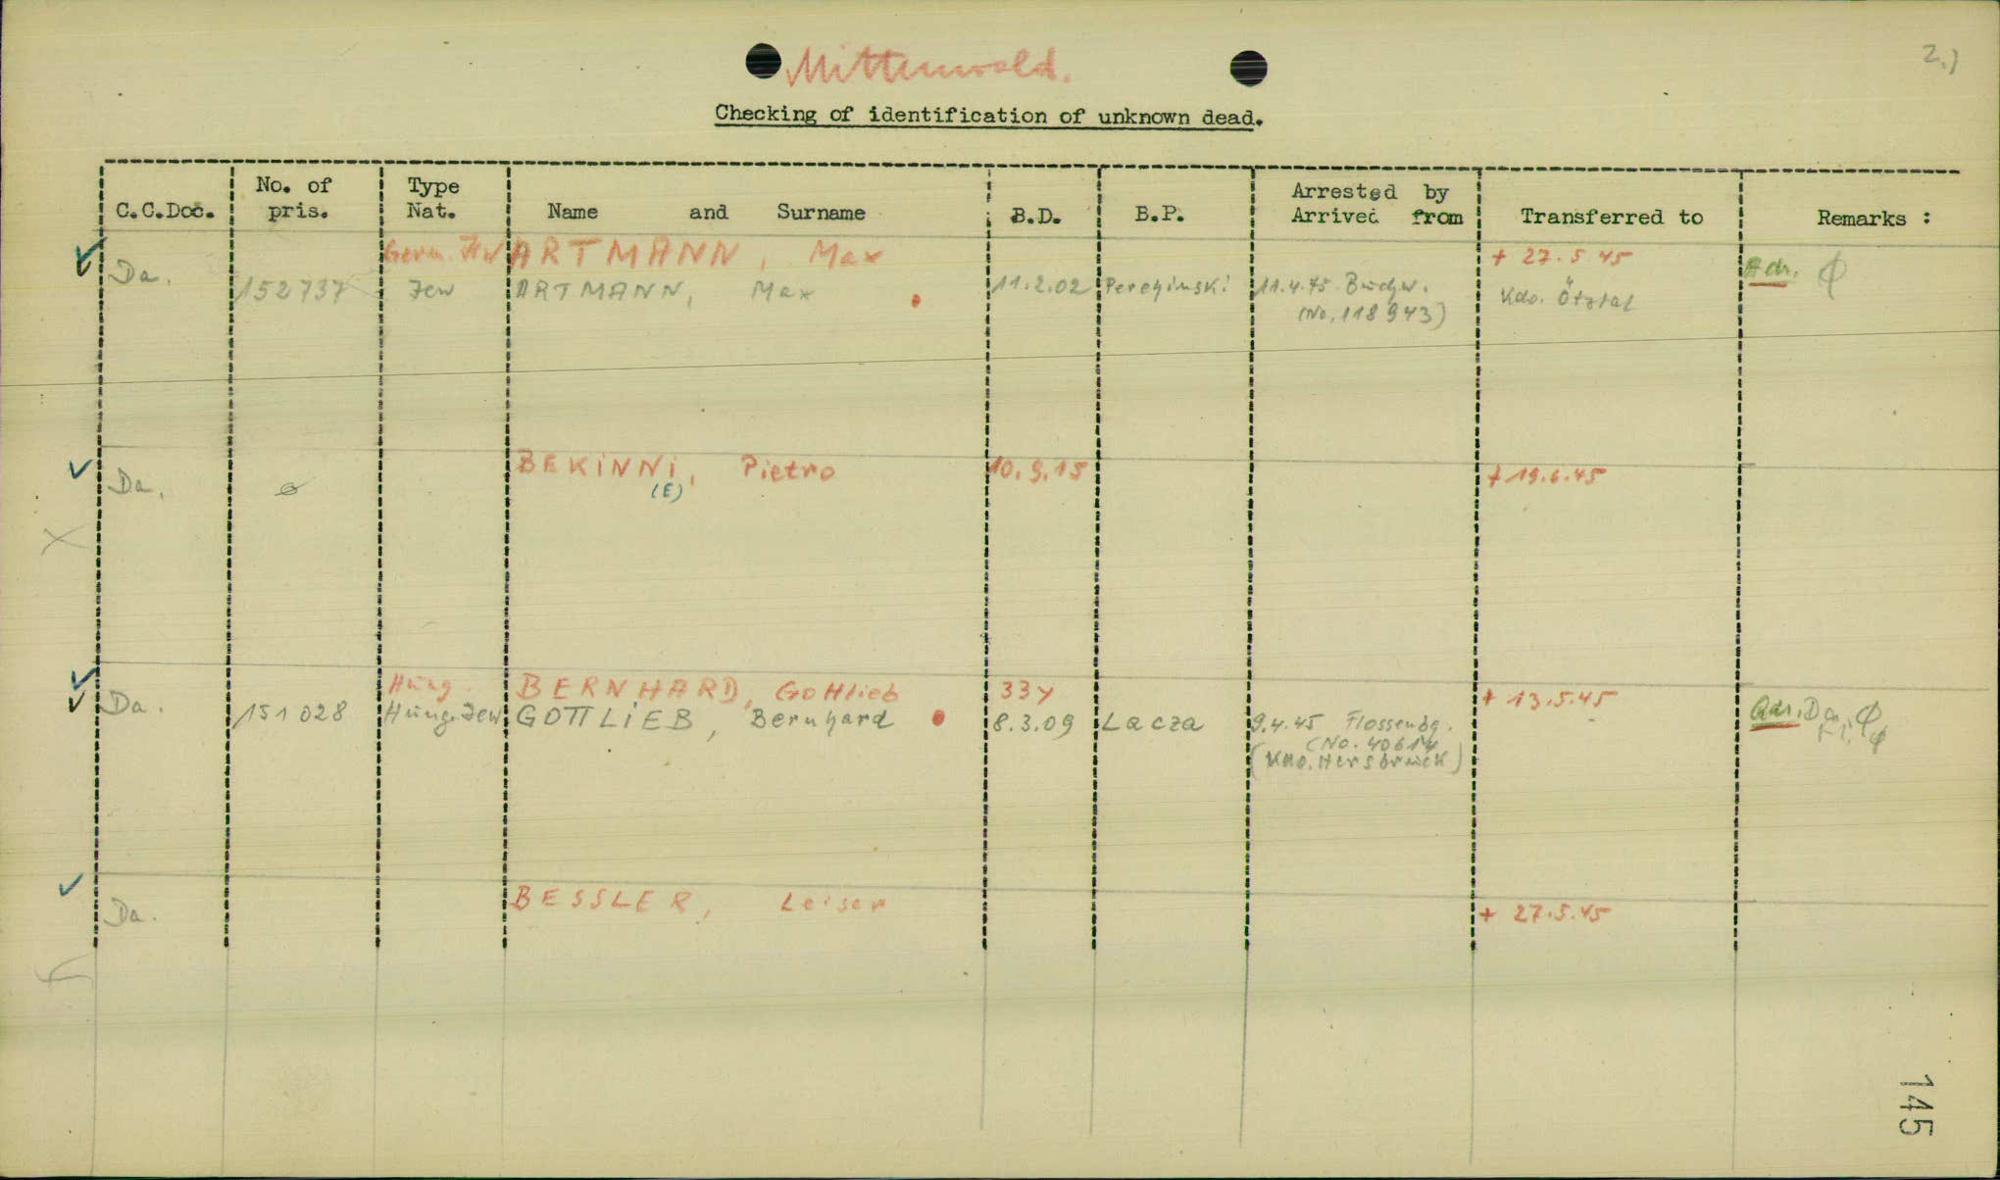 Mittenwald.
2.)
Checking of identification of unknown dead.
C.C.Doc. No. of pris. Type Nat. Name and Surname B.D. B.P. Arrested by Arrived from Transferred to Remarks :
Germ. ARTMANN, Max + 27.5 45
Da. 152737 Jew ARTMANN, Max 11.2.02 Pereginski 11.4.45 Buchw. Kdo. Ötztal Adr.
(No. 118943)
BEKINNI, Pietro 10.9.15 + 19.6.45
(E)
Da. ø
Hung. BERNHARD, Gottlieb 33y + 13.5.45
Da. 151028 Hung. Jew GOTTLIEB, Bernhard 8.3.09 Lacza 9.4.45 Flossenbg. Adr. Da.
(No. 40614
Kdo. Hersbruck)
BESSLER, Leiser + 27.5.45
Da.
145